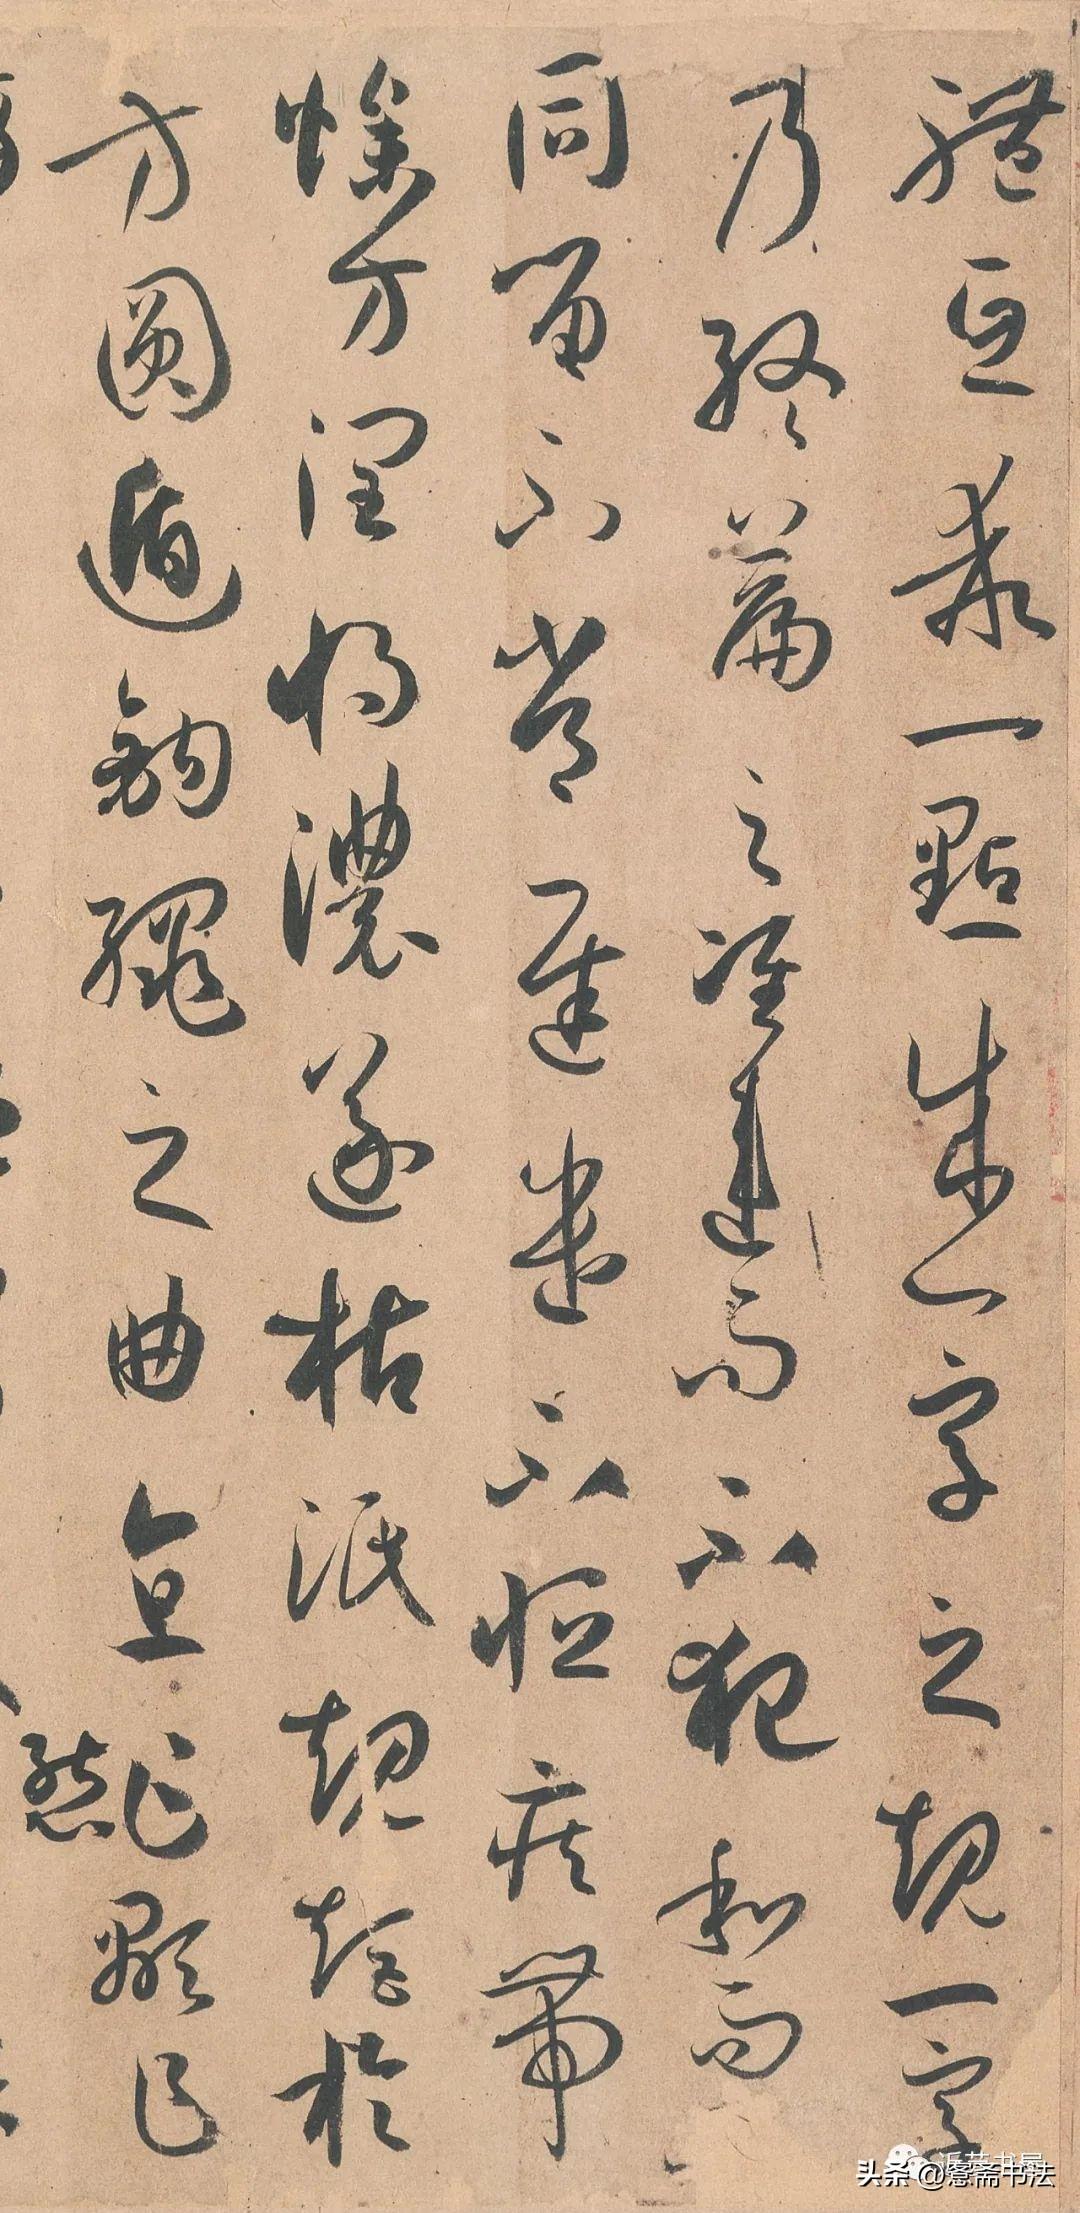 體互乖一點成一字之規一字
乃終篇之准違而不犯和而
同留不常遲遣不恒疾帶
燥方潤將濃遂枯泯規矩於
方圓遁鉤繩之曲直乍顯乍
態
头条 @愙斋书法